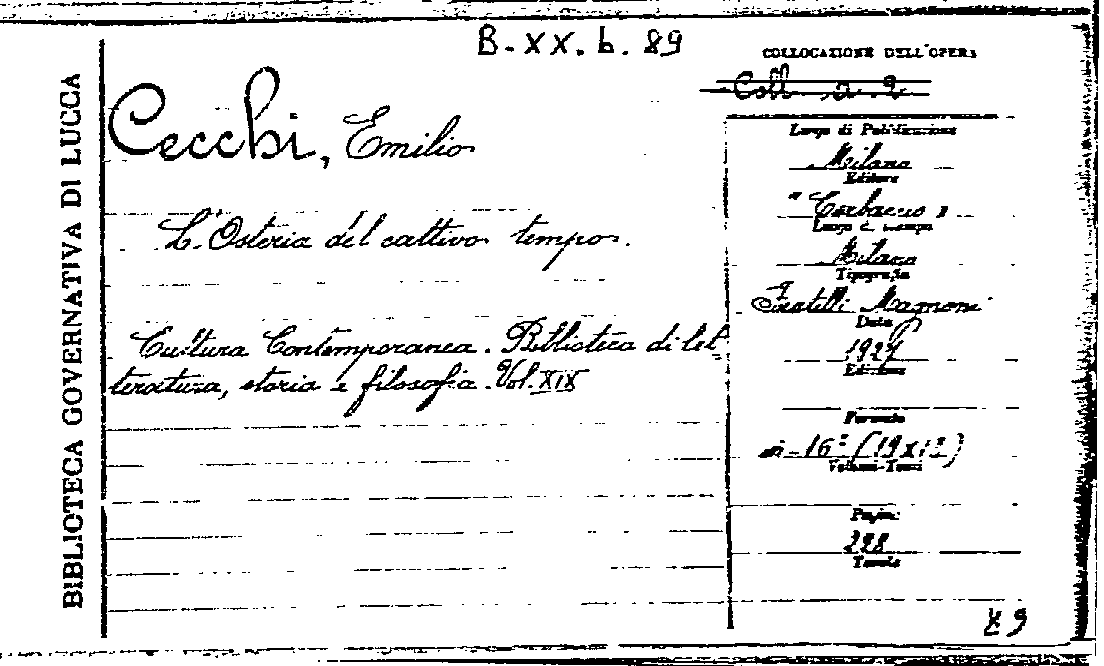 B. XX. b. 89
BIBLIOTECA GOVERNATIVA DI LUCCA
Cecchi, Emilio
L'Osteria del cattivo tempo.
Cultura Contemporanea. Biblioteca di let
teratura, storia e filosofia. Vol. XIX
COLLOCAZIONE DELL'OPERA
Coll
Luogo di Pubblicazione
Milano
Editore
"Corbaccio"
Luogo di stampa
Milano
Tipografia
Fratelli Magnoni
Data
1924
Edizione
Formato
in-16° (19x12)
Volumi-Tomi
Pagine
228
Tavole